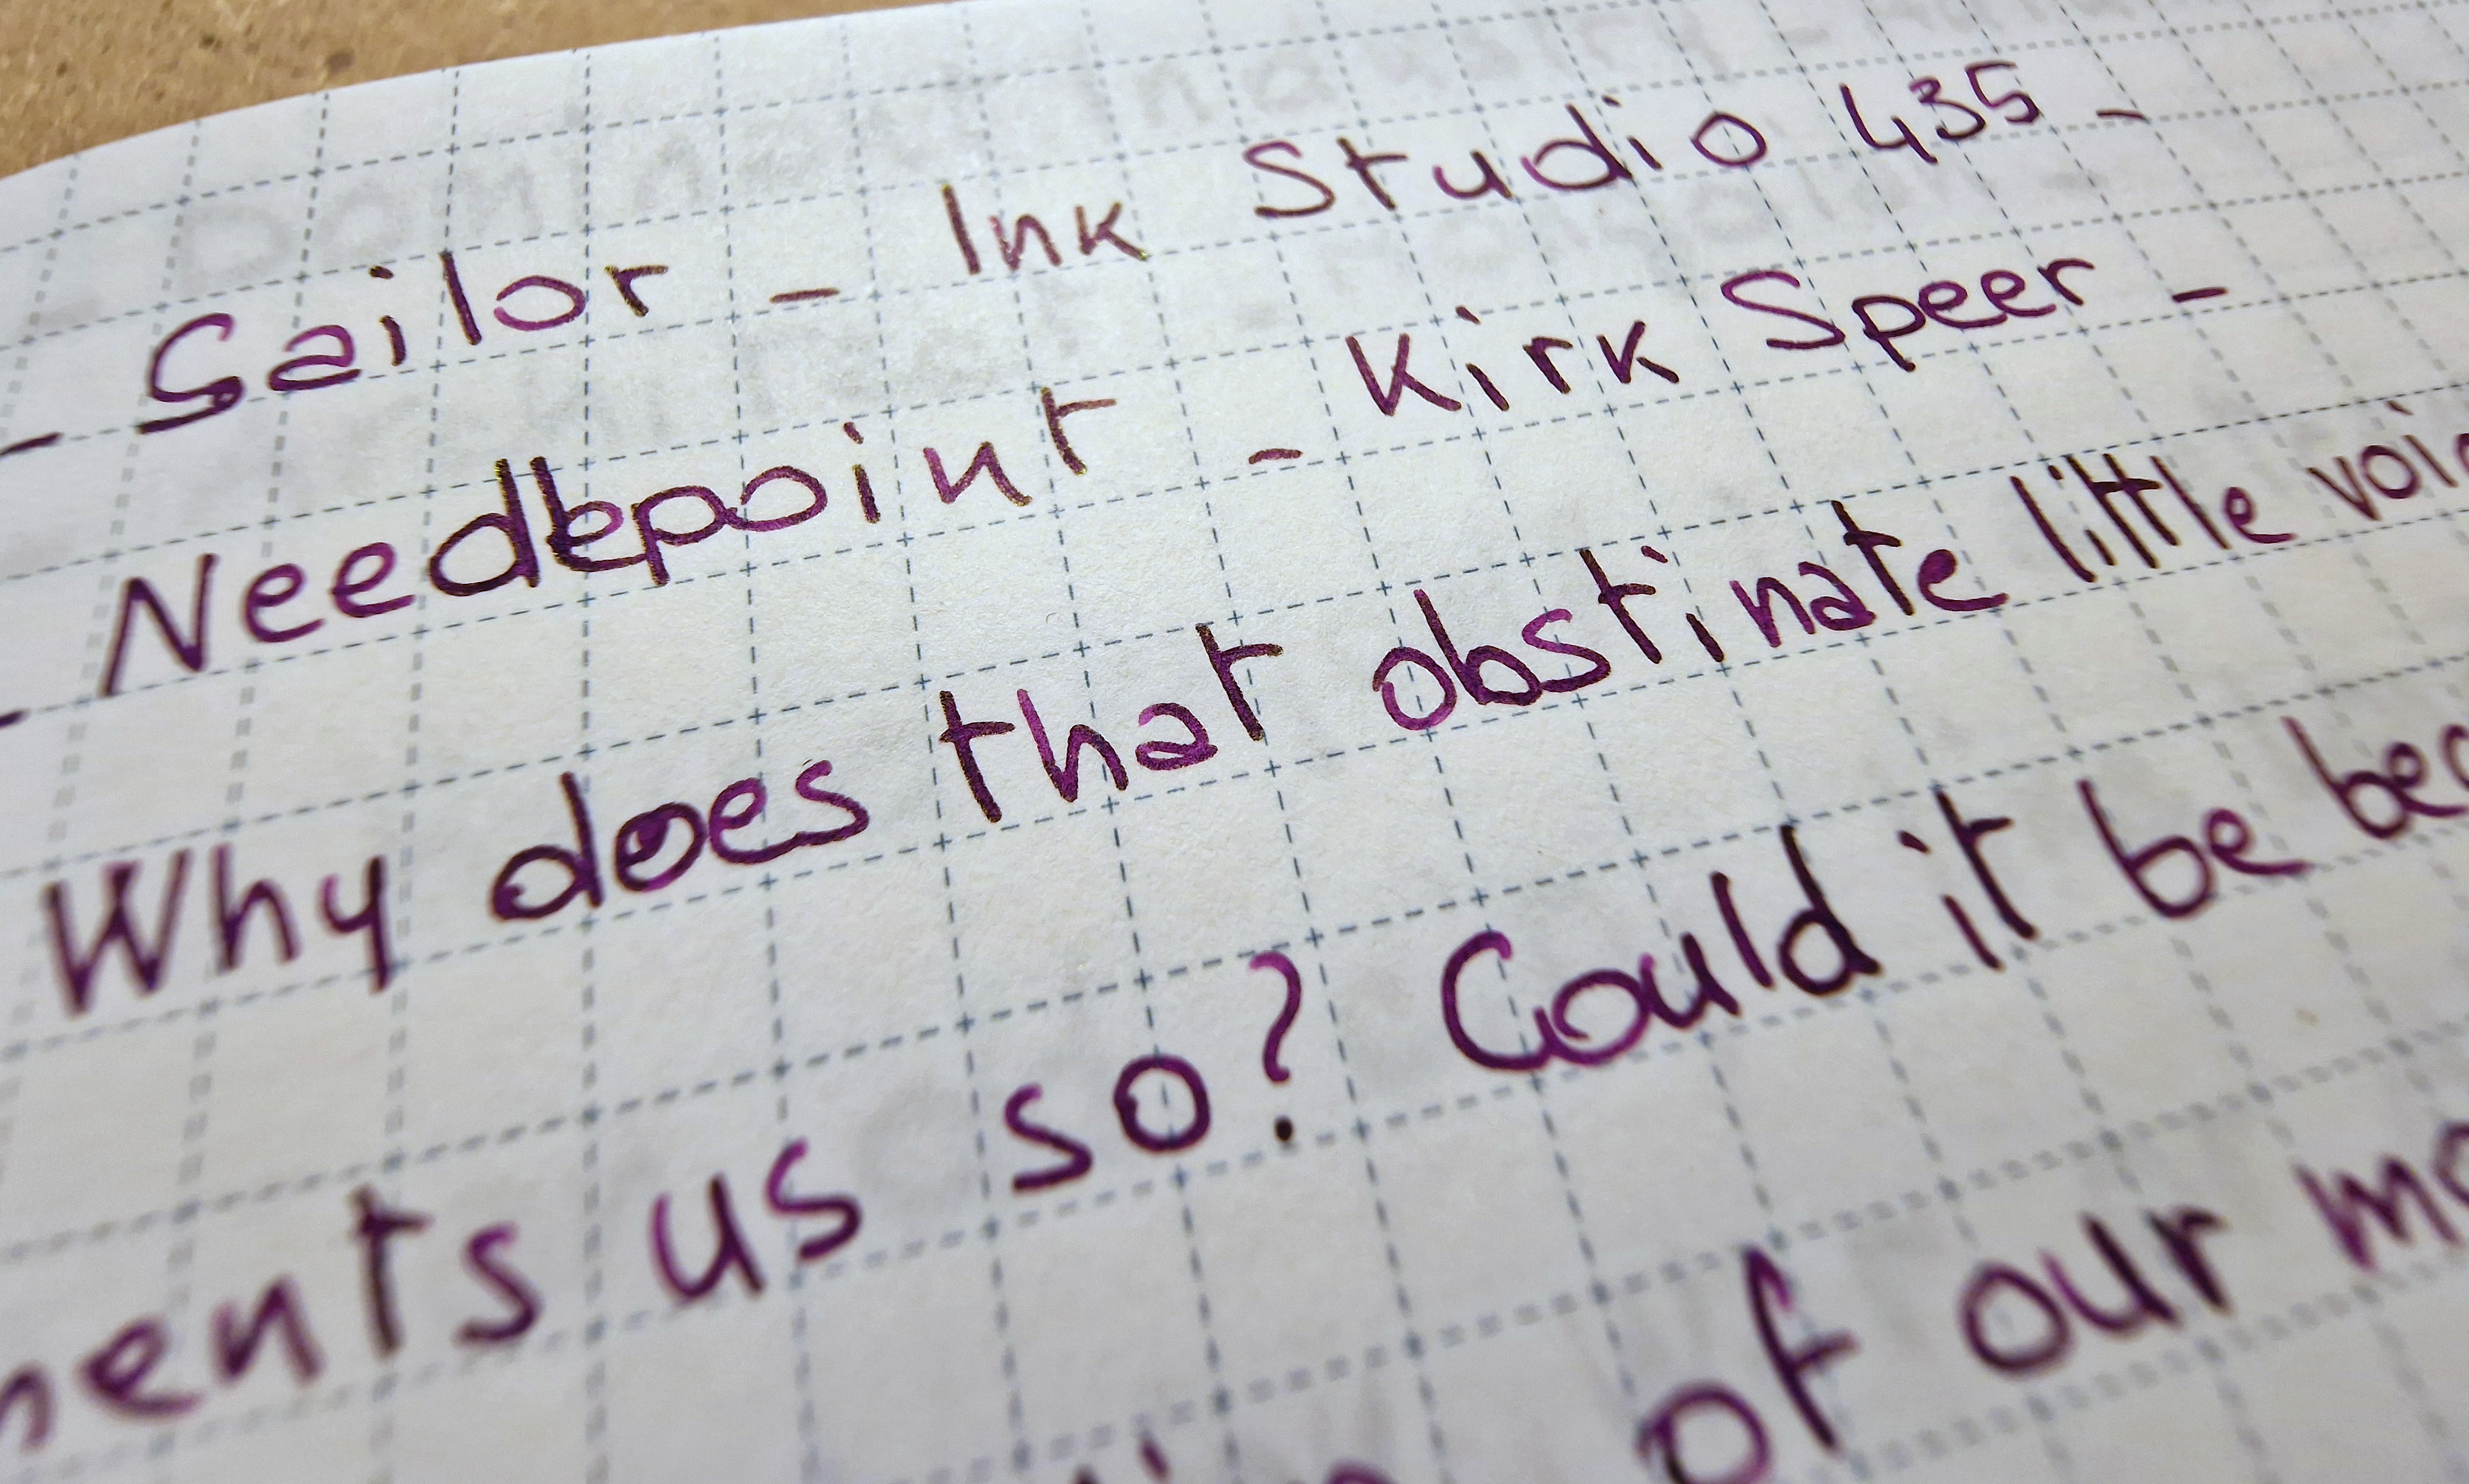 - Sailor - Ink Studio 435 -
- Needlepoint - Kirk Speer -
Why does that obstinate little
us so? Could it be
of our